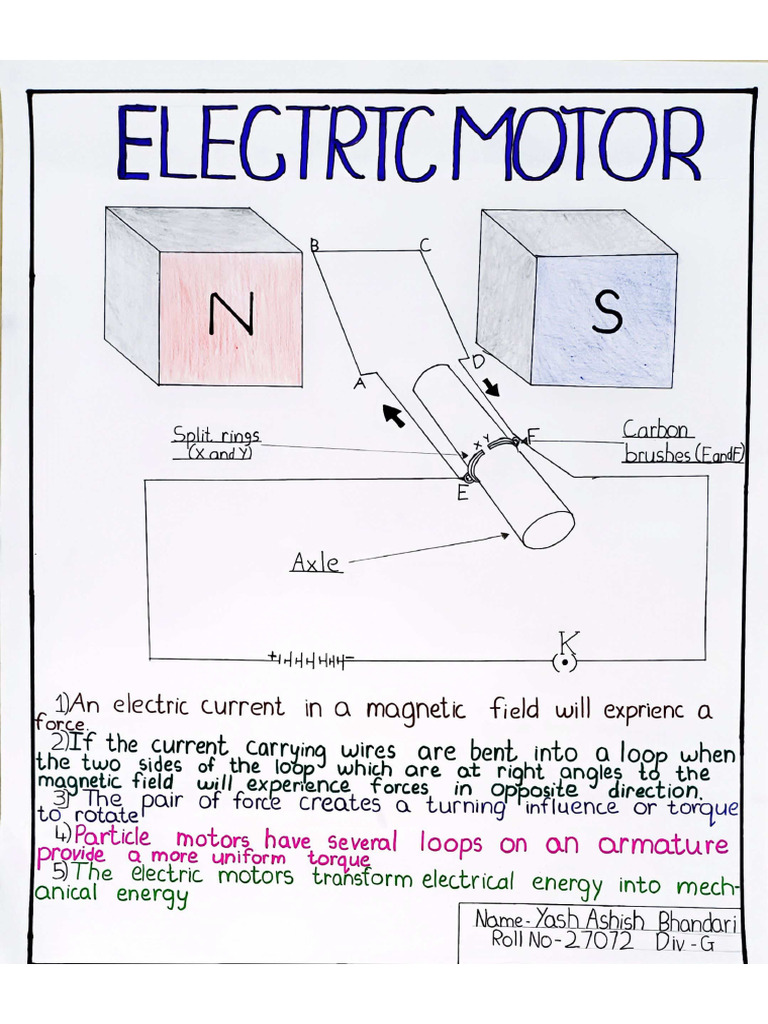 ELECTRIC MOTOR
B C
N S
D
A
Split rings
(X and Y)
X Y F
Carbon
brushes (E and F)
E
Axle
K
+ -
1) An electric current in a magnetic field will exprienc a
force.
2) If the current carrying wires are bent into a loop when
the two sides of the loop which are at right angles to the
magnetic field will experience forces in opposite direction.
3) The pair of force creates a turning influence or torque
to rotate
4) Particle motors have several loops on an armature
provide a more uniform torque
5) The electric motors transform electrical energy into mech-
anical energy
Name- Yash Ashish Bhandari
Roll No-27072 Div-G